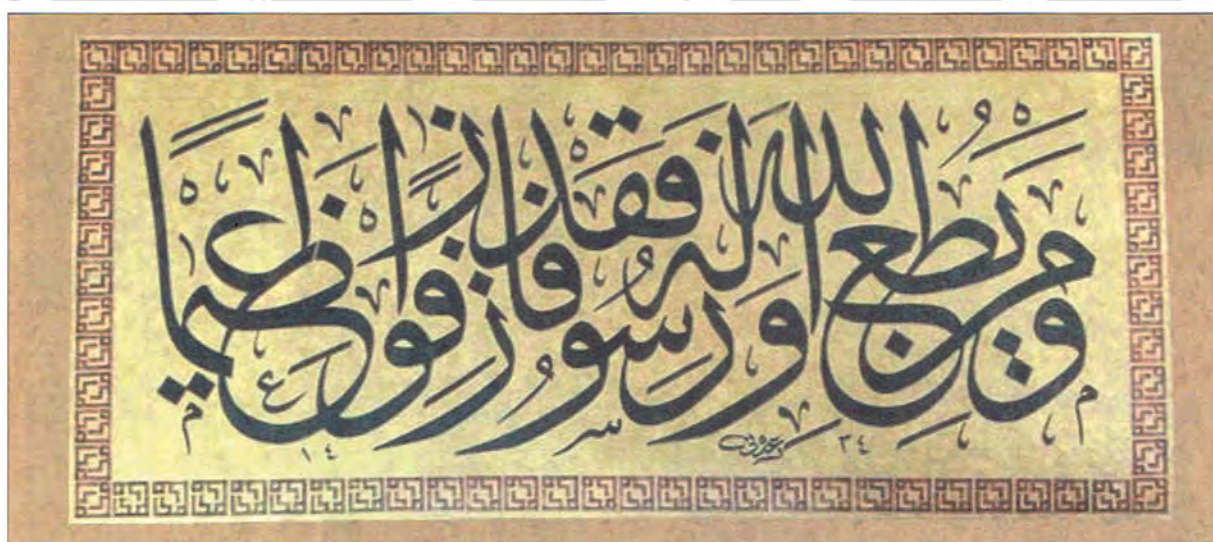 وَمَن يُطِعِ اللَّهَ وَرَسُولَهُ فَقَدْ فَازَ فَوْزًا عَظِيمًا
١٤ ٣٤